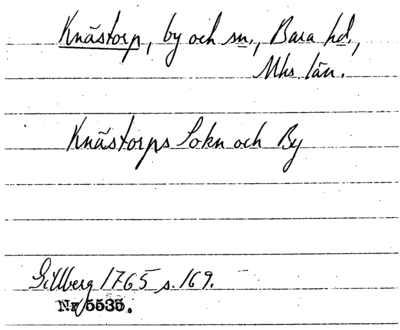 Knästorp, by och sn., Bara hd.,
Mhs län.
Knästorps Sokn och By
Gillberg 1765 s. 169.
Nr 5535.